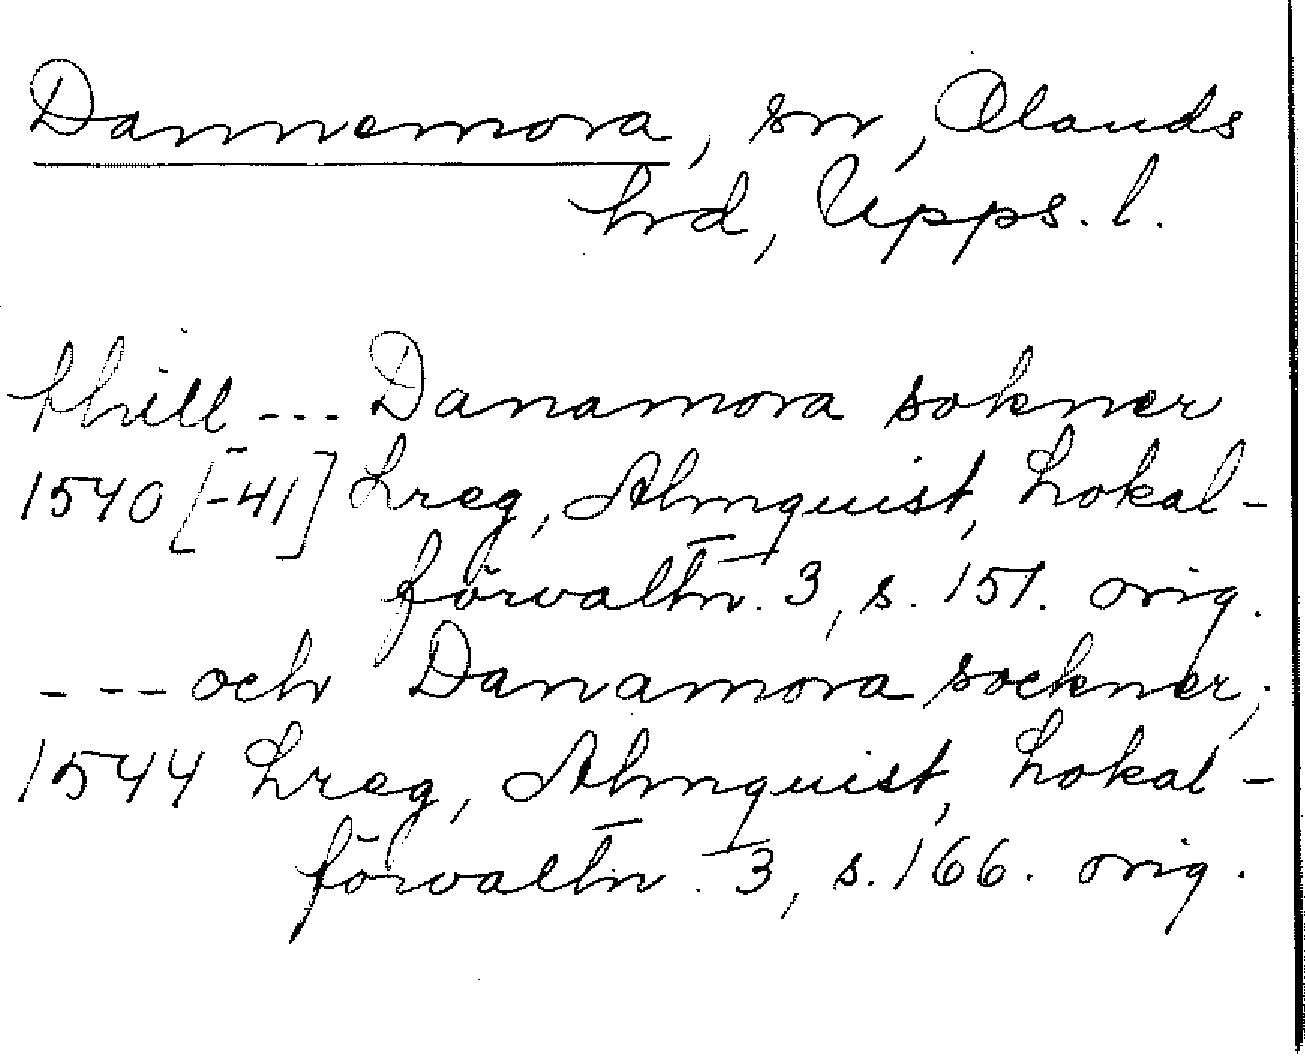 Dannemora, sn, Olands
hd, Upps. l.
thill --- Danamora sokner
1540 [-41] Lreg, Almquist, Lokal-
förvaltn. 3, s. 151. orig.
--- och Danamora sockner;
1544 Lreg, Almquist, Lokal-
förvaltn. 3, s. 166. orig.